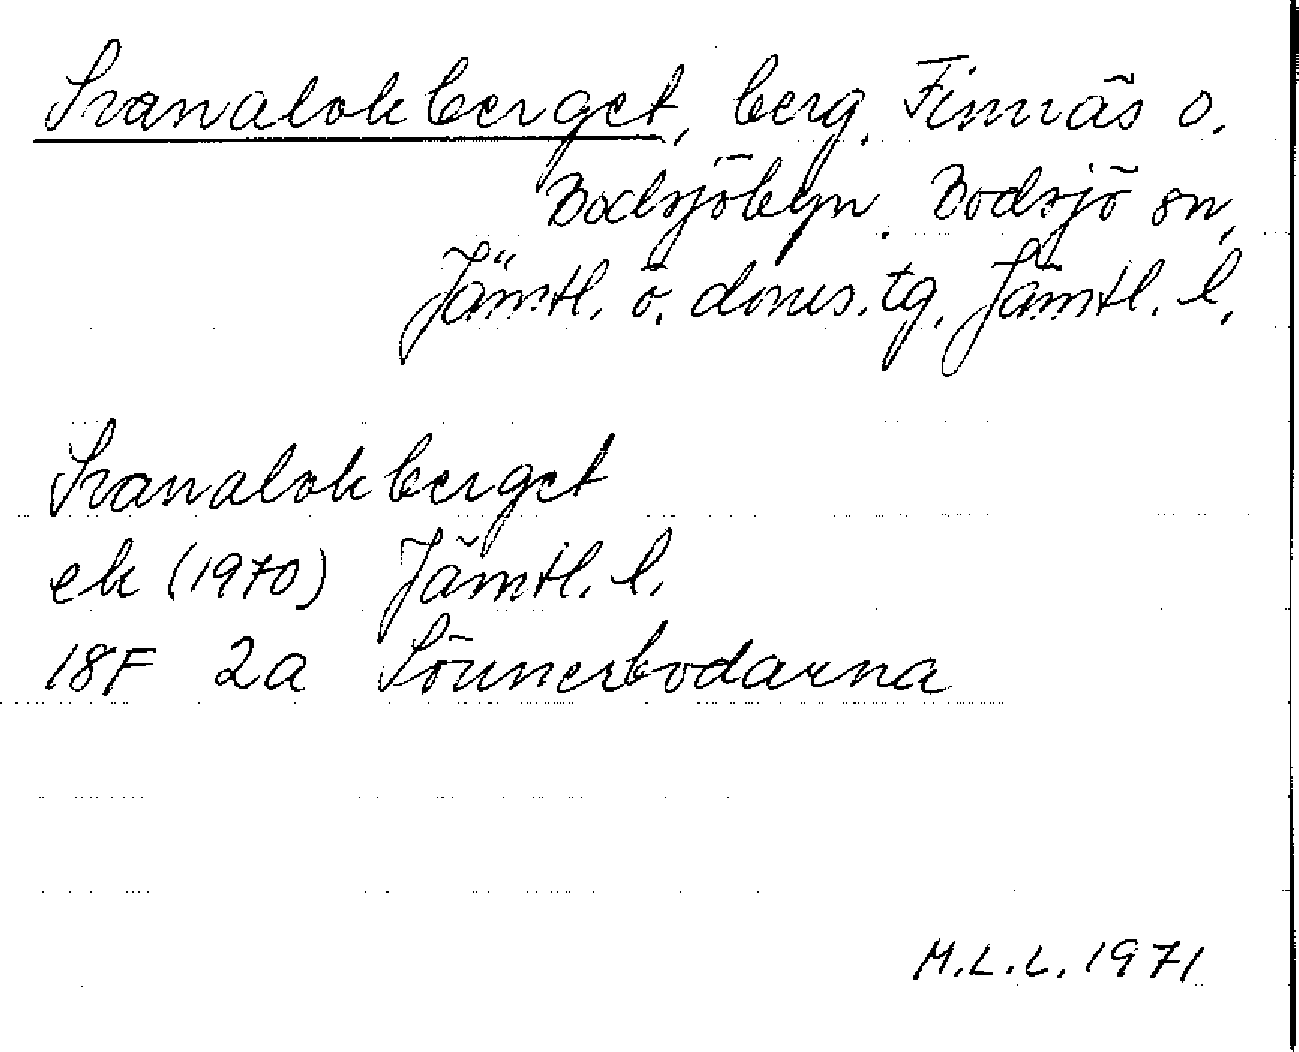 Svanalokberget, berg. Finnäs o.
Bodsjöbyn. Bodsjö sn,
Jämtl. ö. doms.tg. Jämtl. l.
Svanalokberget
ek (1970) Jämtl. l.
18F 2a Sönnerbodarna
M.L.L. 1971